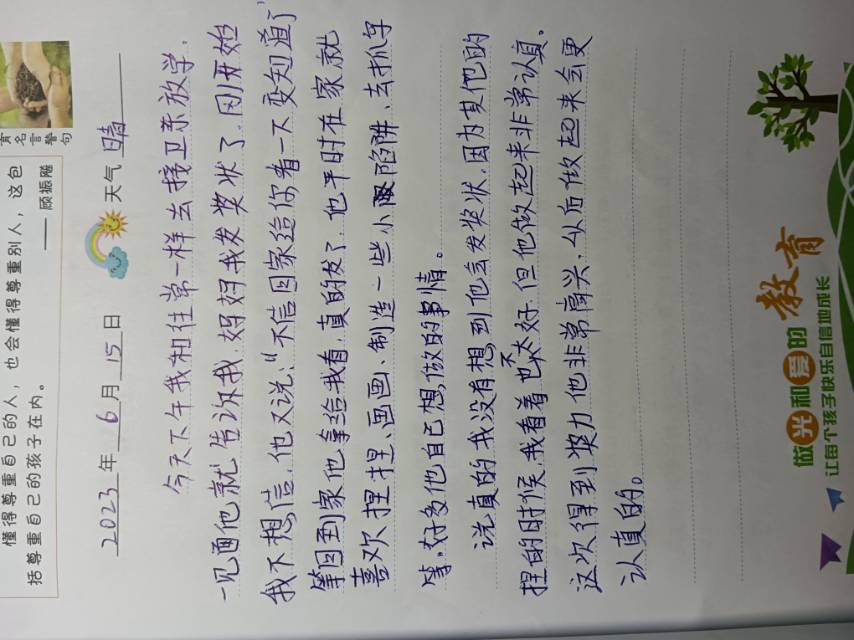 育名言警句
懂得尊重自己的人，也会懂得尊重别人，这包
括尊重自己的孩子在内。 —— 顾振飚
2023年6月15日 天气 晴
今天下午我和往常一样去接卫东放学，
一见面他就告诉我，妈妈我发奖状了，刚开始
我不想信，他又说，“不信回家给你看一下变知道了”，
等回到家他拿给我看，真的发了，他平时在家就
喜欢捏捏、画画、制造一些小陷阱、去抓字
等，好多他自己想做的事情。
说真的我没有想到他会发奖状，因为其他的
捏的时候，我看着也不太好，但他做起来非常认真。
这次得到奖力他非常高兴，从后做起来会更
认真的。
做光和爱的教育
让每个孩子快乐自信地成长